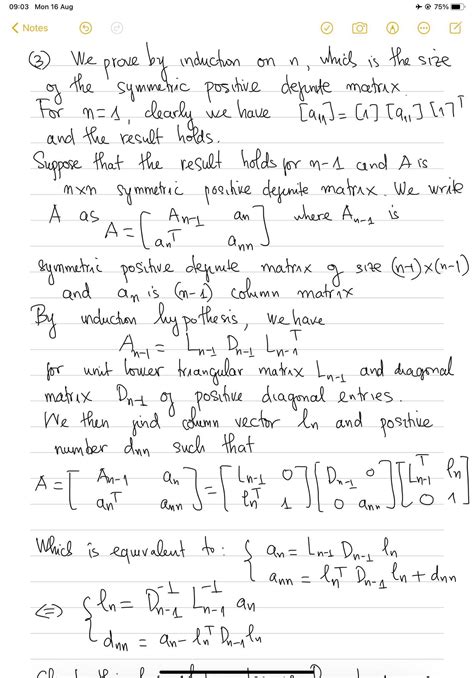 09:03 Mon 16 Aug 75%
Notes
③ We prove by induction on n, which is the size
of the symmetric positive definite matrix.
For n=1, clearly we have [a₁₁] = [1] [a₁₁] [1]ᵀ
and the result holds.
Suppose that the result holds for n-1 and A is
n×n symmetric positive definite matrix. We write
A as A = [ Aₙ₋₁ aₙ ; aₙᵀ aₙₙ ] where Aₙ₋₁ is
symmetric positive definite matrix of size (n-1)×(n-1)
and aₙ is (n-1) column matrix
By induction hypothesis, we have
Aₙ₋₁ = Lₙ₋₁ Dₙ₋₁ Lₙ₋₁ᵀ
for unit lower triangular matrix Lₙ₋₁ and diagonal
matrix Dₙ₋₁ of positive diagonal entries.
We then find column vector lₙ and positive
number dₙₙ such that
A = [ Aₙ₋₁ aₙ ; aₙᵀ aₙₙ ] = [ Lₙ₋₁ 0 ; lₙᵀ 1 ] [ Dₙ₋₁ 0 ; 0 aₙₙ ] [ Lₙ₋₁ᵀ lₙ ; 0 1 ]
Which is equivalent to: { aₙ = Lₙ₋₁ Dₙ₋₁ lₙ
aₙₙ = lₙᵀ Dₙ₋₁ lₙ + dₙₙ
⇔ { lₙ = Dₙ₋₁⁻¹ Lₙ₋₁⁻¹ aₙ
dₙₙ = aₙ - lₙᵀ Dₙ₋₁ lₙ